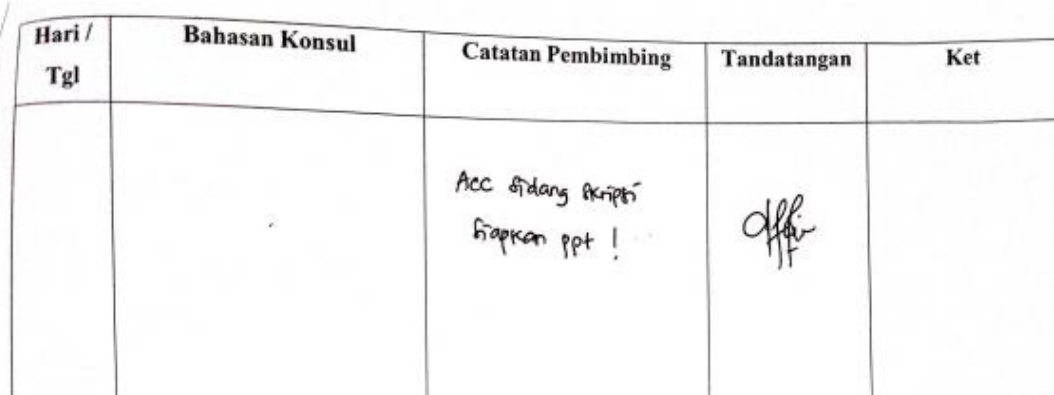 Hari / Bahasan Konsul Catatan Pembimbing Tandatangan Ket
Tgl
Acc sidang skripsi
siapkan ppt !